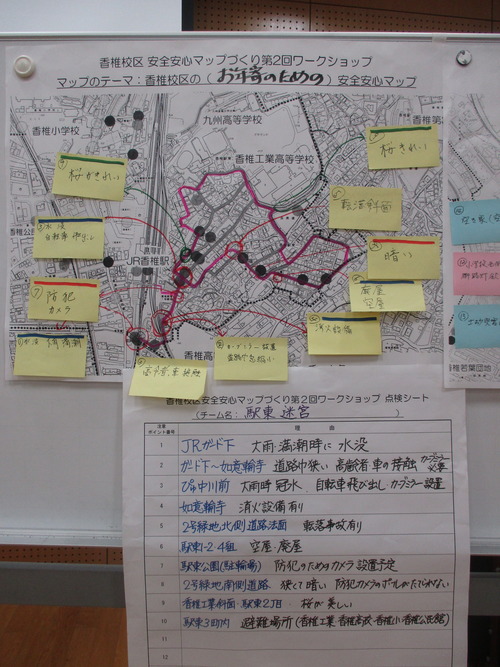 香椎校区 安全安心マップづくり第2回ワークショップ
マップのテーマ：香椎校区の（お年寄のための）安全安心マップ
香椎小学校
九州高等学校
香椎工業高等学校
桜がきれい
桜きれい
転落斜面
暗い
JR香椎駅
防犯
カメラ
廃屋
空屋
消火設備
香椎若葉団地
香椎校区安全安心マップづくり第2回ワークショップ 点検シート
（チーム名： 駅東 迷宮 ）
注意
ポイント番号
理 由
1 JRガード下 大雨・満潮時に 水没
2 ガード下～如意輪寺 道路巾狭い 高齢者 車の接触 カーブミラー必要
3 ぴゅあ中川前 大雨時 冠水、自転車飛び出し・カーブミラー設置
4 如意輪寺 消火設備有り
5 2号緑地北側道路法面 転落事故有り
6 駅東1-2-4組 空屋・廃屋
7 駅東公園(駐輪場) 防犯のためのカメラ設置予定
8 2号緑地南側道路 狭くて暗い 防犯カメラのポールがたてれない
9 香椎工業斜面・駅東2丁目・桜が美しい
10 駅東3町内 避難場所(香椎工業・香椎高校・香椎小・香椎公民館)
11
12